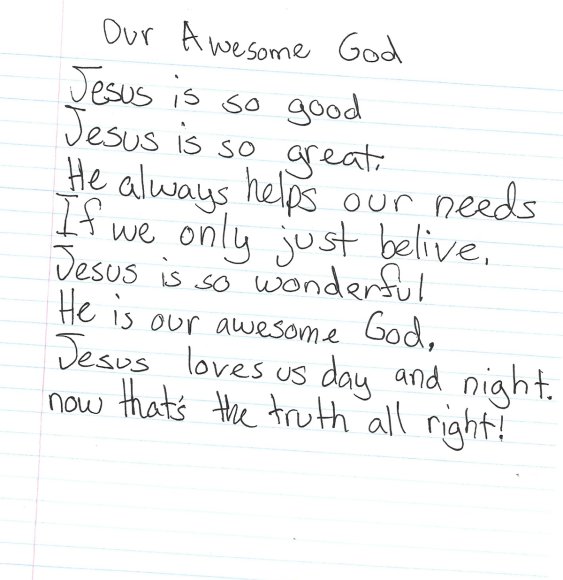 Our Awesome God
Jesus is so good
Jesus is so great.
He always helps our needs
If we only just belive.
Jesus is so wonderful
He is our awesome God,
Jesus loves us day and night.
now that's the truth all right!